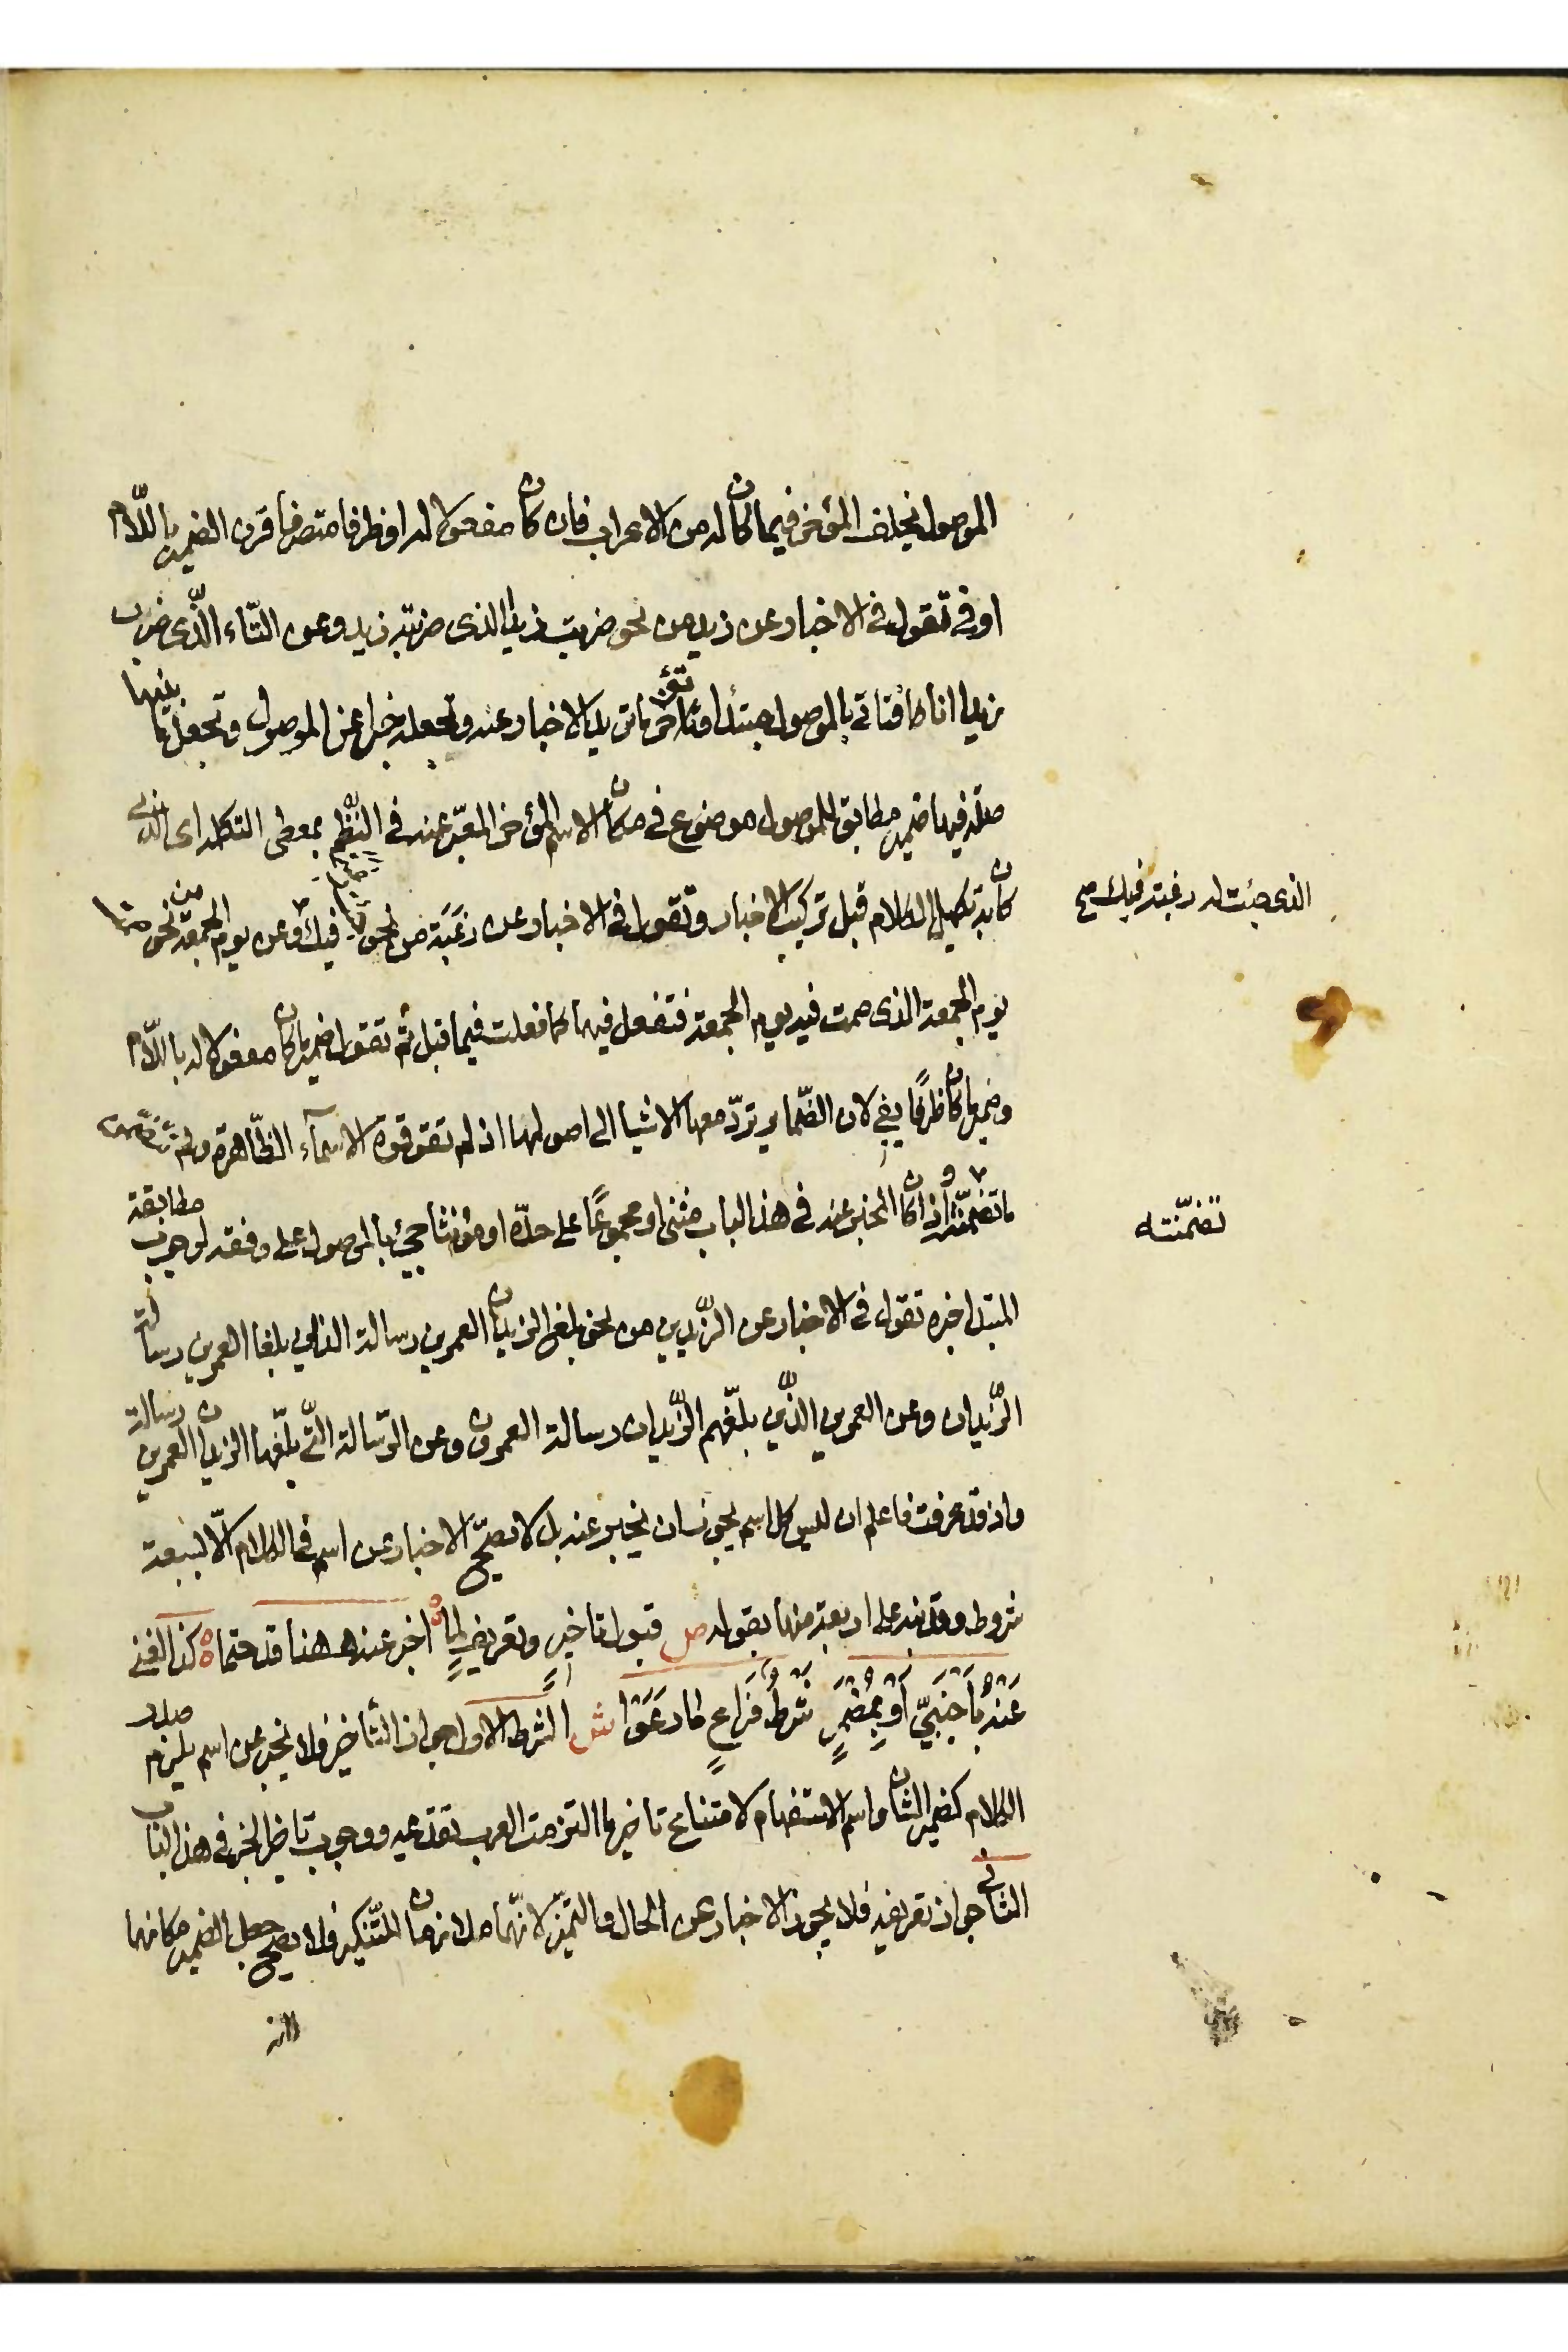 الموصول يخلف المؤخر فيما كان له من الاعراب فان كان مفعولا له او ظرفا متصرفا قرن الضمير باللّام
او في تقول في الاخبار عن زيد من نحو ضربت زيدا الذى ضربته زيد وعن التّاء الّذى ضرب
زيدا انا فتاتى بالموصول مبتدا وتؤخر ما تريد الاخبار عنه وتجعله خبرا عن الموصول وتجعل ما بينهما
صلة فيها ضمير مطابق للموصول موضوع في مكان الاسم المؤخر المعبّر عنه في النّظم بمعطى التكملة اى الذى
كان به تكميل الكلام قبل تركيب الاخبار وتقول في الاخبار عن رغبة من نحو جئت رغبة فيك وعن يوم الجمعة من نحو صمت
الذى جئت له رغبة فيك صح
يوم الجمعة الذى صمت فيه يوم الجمعة فتفعل فيهما كما فعلت فيما قبل ثم تقول ضمير ما كان مفعولا له باللّام
وضمير ما كان ظرفًا بفي لان الضّماير تردّ معها الاشيا الى اصولها اذ لم تقو قوة الاسمآء الظّاهرة ولم تتضمن
ما تضمّنته واذا كان المخبر عنه في هذا الباب مثنى او مجموعًا على حدّه او مؤنثا جيئ بالموصول على وفقه لوجوب مطابقة
تضمّنته
المبتدا خبره تقول في الاخبار عن الزّيدين من نحو بلغ الزيدان العمرين رسالة الذان بلغا العمرين رسالة
الزّيدان وعن العمرين الذّين بلّغهم الزّيدان رسالة العمرون وعن الرّسالة التّى بلّغها الزيدان العمرين رسالة
واذ قد عرفت فاعلم ان ليس كل اسم يجوز ان يخبر عنه بل لا يصحّ الاخبار عن اسم في الكلام الّا بسبعة
شروط وقد نبه على اربعة منها بقوله ص قبول تاخير وتعريف لما ه اخبر عنه ههنا قد حتما ه كذا الغنى
عَنْهُ بأَجْنَبِيّ أَوْ بِمُضْمَرٍ شَرْطٌ فَرَاعِ مَا رَعَوْا ش الشرط الاول جواز التأخير فلا يخبر عن اسم يلزم صدر
الكلام كضمير الشان واسم الاستفهام لامتناع تاخير ما التزمت العرب تقديمه ووجوب تاخير الخبر في هذا الباب
الثانى جواز تعريفه فلا يجوز الاخبار عن الحال والتميز لانّهما ملازمان للتّنكير فلا يصح جعل الضمير مكانهما
لانه